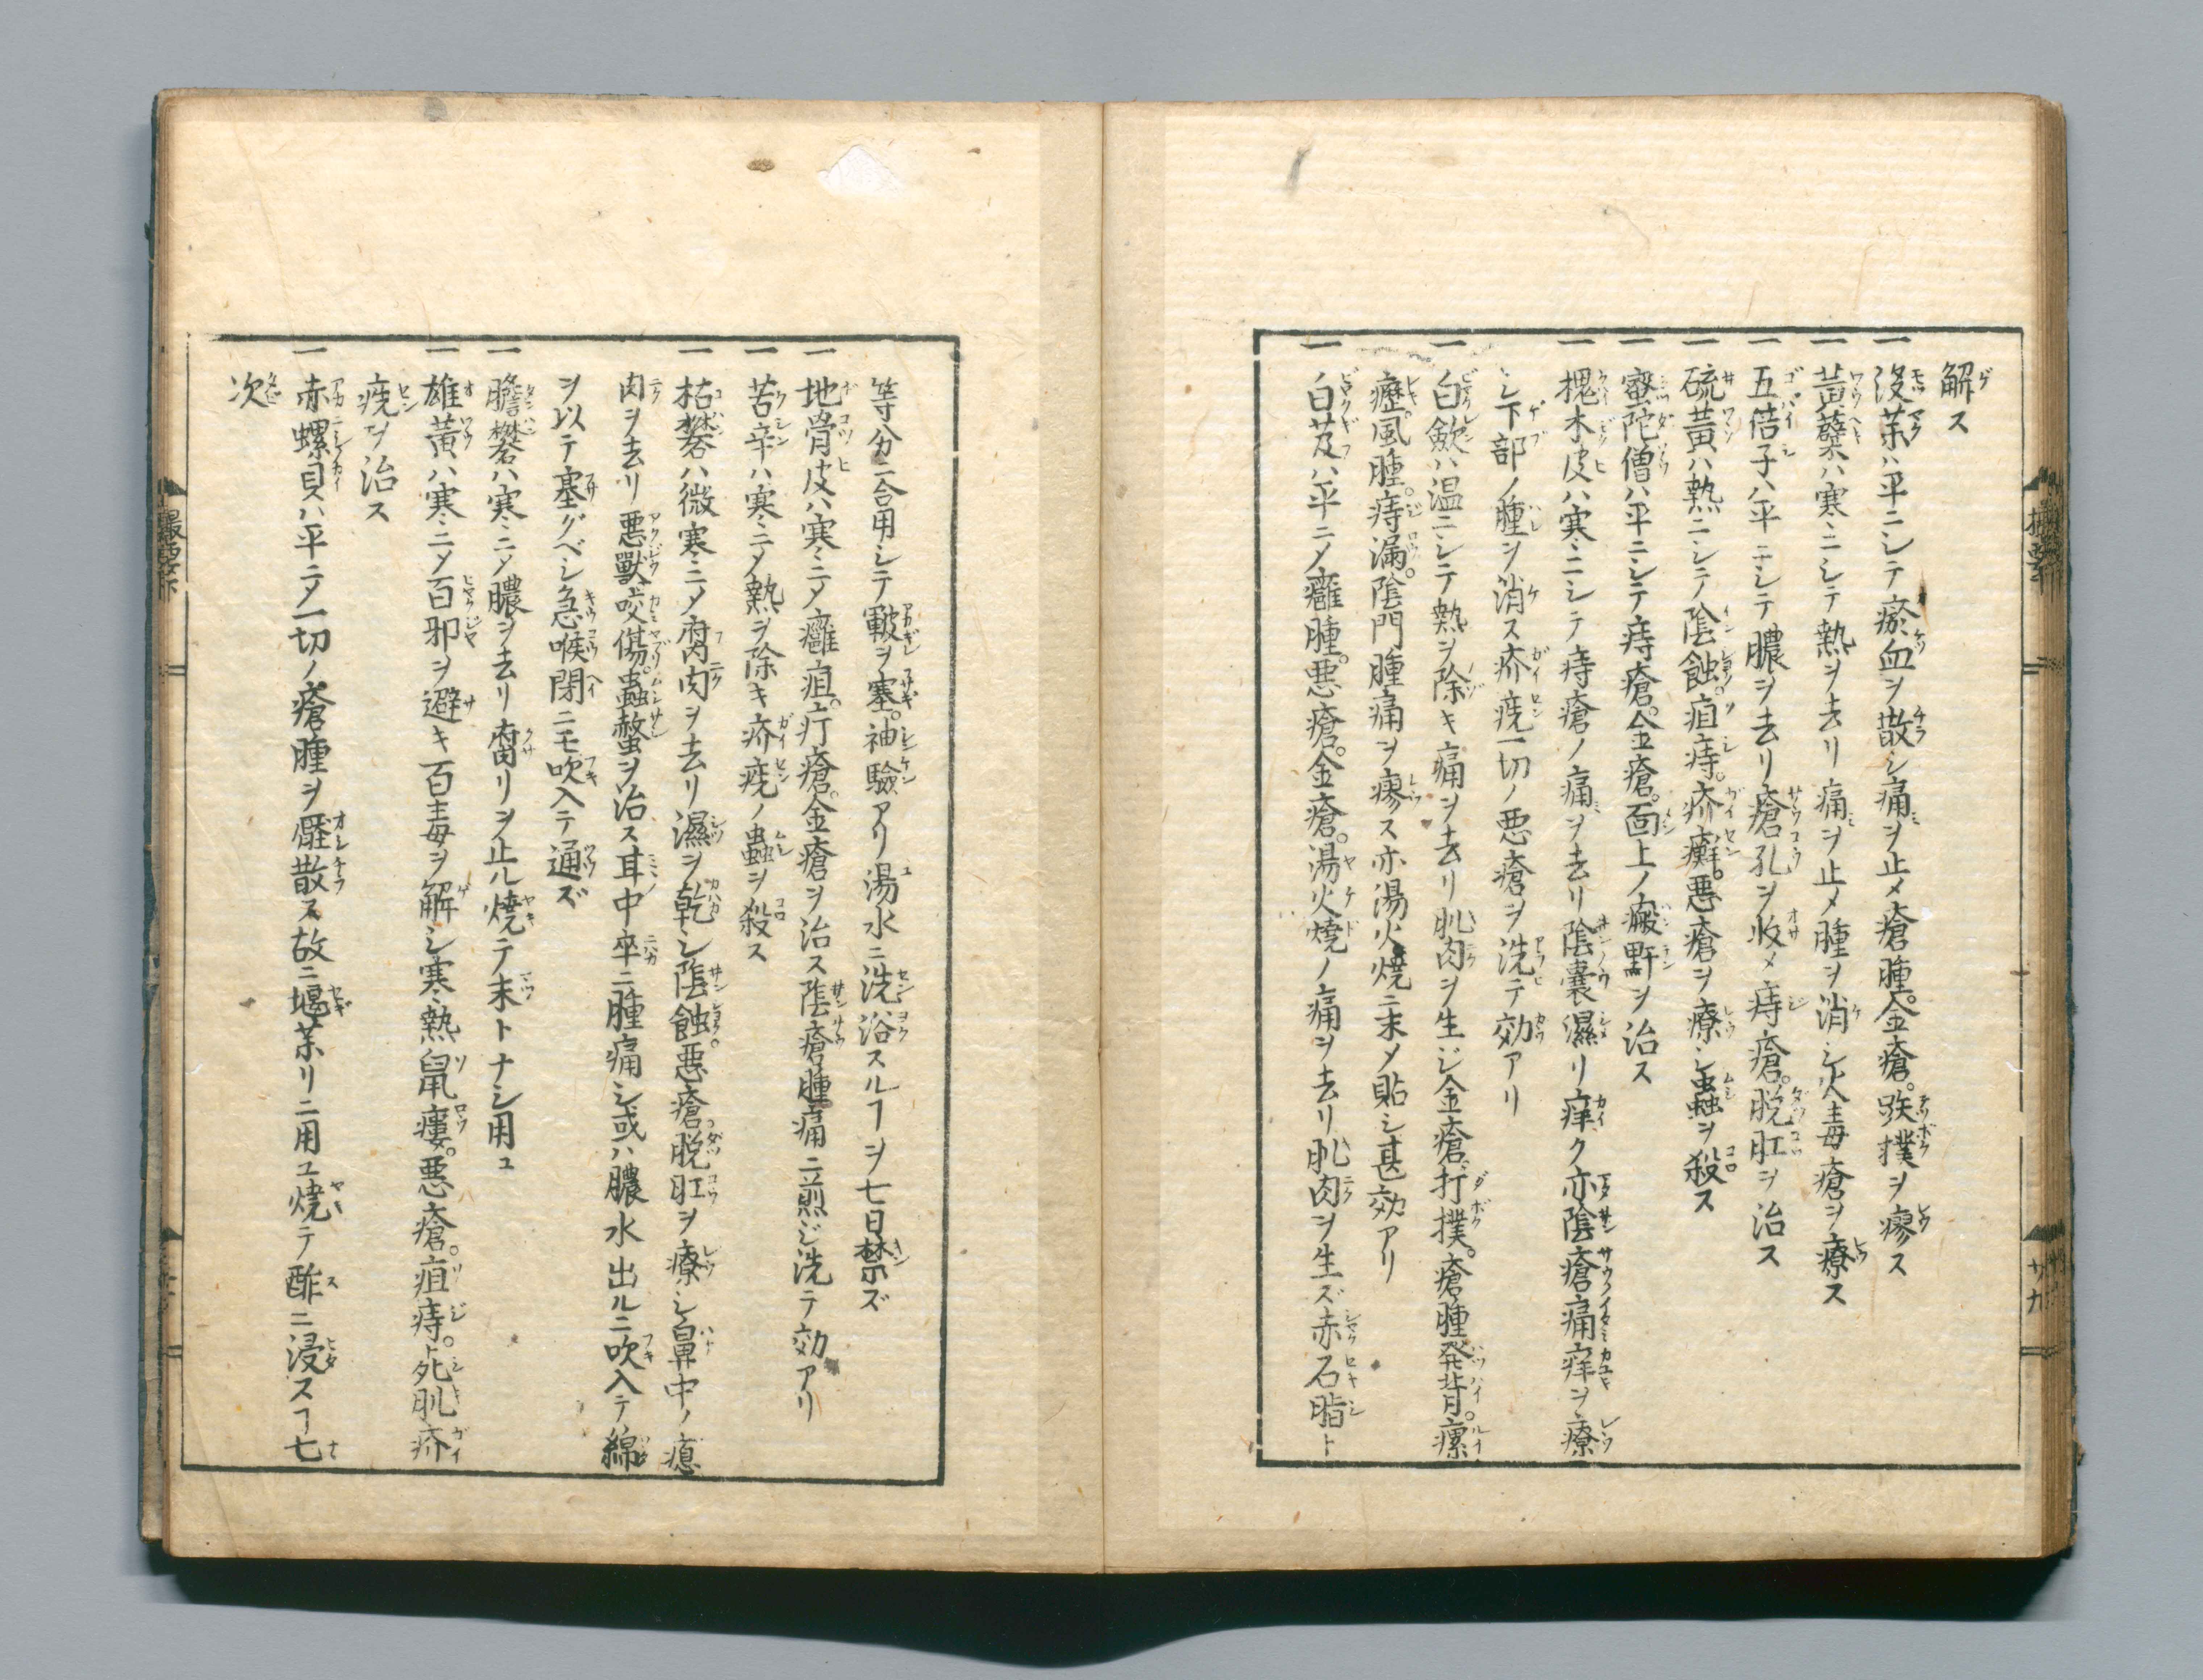 解ス
一没薬ハ平ニシテ瘀血ヲ散シ痛ヲ止メ瘡腫。金瘡。跌撲ヲ療ス
一黄蘗ハ寒ニシテ熱ヲ去リ痛ヲ止メ腫ヲ消シ火毒瘡ヲ療ス
一五倍子ハ平ニシテ膿ヲ去リ瘡孔ヲ收メ痔瘡。脱肛ヲ治ス
一硫黄ハ熱ニシテ陰蝕。疽痔。疥癬。悪瘡ヲ療シ蟲ヲ殺ス
一蜜陀僧ハ平ニシテ痔瘡。金瘡。面上ノ瘢䵟ヲ治ス
一槐木皮ハ寒ニシテ痔瘡ノ痛ヲ去リ陰嚢濕リ痒ク亦陰瘡痛痒ヲ療
シ下部ノ腫ヲ消ス疥㾌一切ノ悪瘡ヲ洗テ効アリ
一白歛ハ温ニシテ熱ヲ除キ痛ヲ去リ肌肉ヲ生ジ金瘡打撲。瘡腫発背。瘰
癧。風腫。痔漏。陰門腫痛ヲ瘳ス亦湯火焼ニ末メ貼シ甚効アリ
一白芨ハ平ニメ癰腫。悪瘡。金瘡。湯火焼ノ痛ヲ去リ肌肉ヲ生ズ赤石脂ト
等分ニ合用シテ皸ヲ塞。袖驗アリ湯水ニ洗浴スルヿヲ七日禁ズ
一地骨皮ハ寒ニメ癰疽。疔瘡。金瘡ヲ治ス陰瘡腫痛ニ煎ジ洗テ効アリ
一苦辛ハ寒ニメ熱ヲ除キ疥㾌ノ蟲ヲ殺ス
一枯礬ハ微寒ニメ腐肉ヲ去リ濕ヲ乾シ陰蝕。悪瘡。脱肛ヲ療シ鼻中ノ瘜
肉ヲ去リ悪獣咬傷。蟲螫ヲ治ス耳中卒ニ腫痛シ或ハ膿水出ルニ吹入テ綿
ヲ以テ塞グベシ急喉閉ニモ吹入テ通ズ
一膽礬ハ寒ニメ膿ヲ去リ腐リヲ止ル焼テ末トナシ用ユ
一雄黄ハ寒ニメ百邪ヲ避キ百毒ヲ解シ寒熱鼠瘻。悪瘡。疽痔。死肌疥
㾌ヲ治ス
一赤螺貝ハ平ニメ一切ノ瘡腫ヲ散ス故ニ堰薬リニ用ユ焼テ酢ニ浸スヿ七
次
撮要
廿九
撮要下